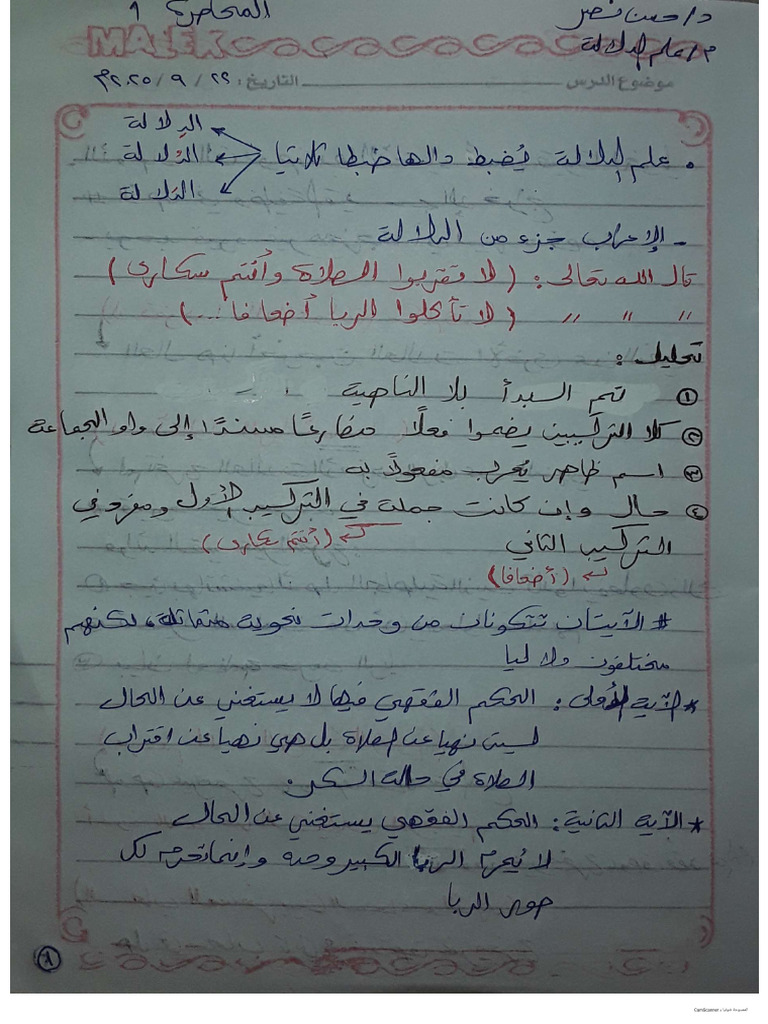 د/حسن نصر
المحاضرة 1
م/علم الدلالة
MALEK
موضوع الدرس
التاريخ: ٢٩ / ٩ / ٢٠٢٥م
• علم الدلالة يُضبط دالها ضبطا ثلاثيا
الدِلالة
الدَلالة
الدُلالة
- الإعراب جزء من الدلالة
قال الله تعالى: (لا تقربوا الصلاة وأنتم سكارى)
〃 〃 〃 (لا تأكلوا الربا أضعافا...)
تحليل:
① تم البدأ بلا الناهية
② كلا التركيبين يضموا فعلًا مضارعًا مسندًا إلى واو الجماعة
③ اسم ظاهر يُعرب مفعولًا به
④ حال وإن كانت جملة في التركيب الأول ومفرد في
(أنتم سكارى)
التركيب الثاني
(أضعافا)
# الآيتان تتكونان من وحدات نحوية متماثلة، لكنهم
مختلفون دلاليا
* الآية الأولى: الحكم الفقهي فيها لا يستغني عن الحال
ليست نهيا عن الصلاة بل هي نهيا عن اقتراب
الصلاة في حالة السكر.
* الآية الثانية: الحكم الفقهي يستغني عن الحال
لا يُحرم الربا الكبير وحده وإنما تحرم كل
صور الربا
CamScanner